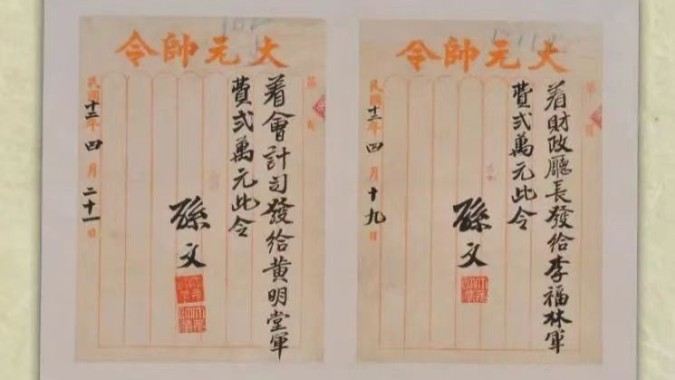 大元帥令
着財政廳長發給李福林軍
費弍萬元此令
孫文
民國十二年四月十九日
大元帥令
着會計司發給黃明堂軍
費弍萬元此令
孫文
民國十二年四月二十一日